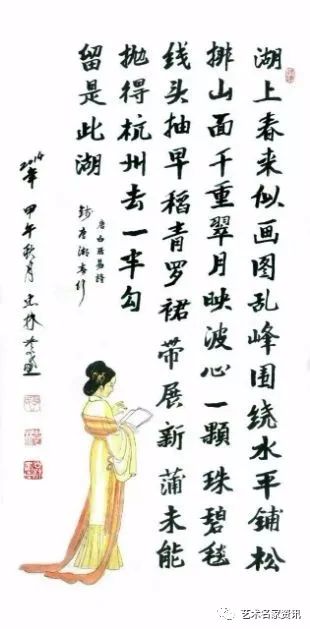 湖上春来似画图乱峰围绕水平铺松
排山面千重翠月映波心一颗珠碧毯
线头抽早稻青罗裙带展新蒲未能
抛得杭州去一半勾
留是此湖
唐白居易诗
钱唐湖春行
2014年 甲午秋月
艺术名家资讯